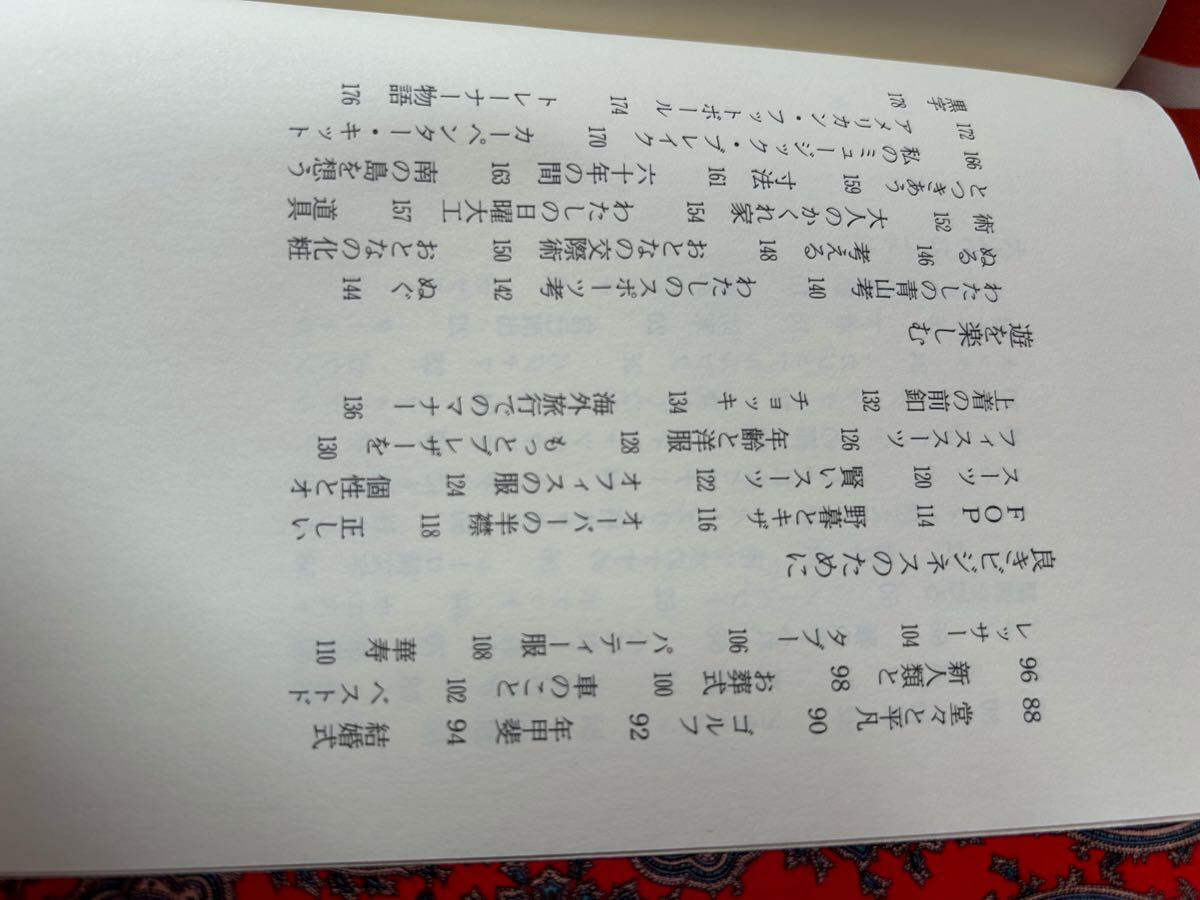 88 堂々と平凡 90 ゴルフ 92 年甲斐 94 結婚式
96 新人類と 98 お葬式 100 車のこと 102 ベストド
レッサー 104 タブー 106 パーティー服 108 華寿 110
良きビジネスのために
FOP 114 野暮とキザ 116 オーバーの半襟 118 正しい
スーツ 120 賢いスーツ 122 オフィスの服 124 個性とオ
フィススーツ 126 年齢と洋服 128 もっとブレザーを 130
上着の前釦 132 チョッキ 134 海外旅行でのマナー 136
遊を楽しむ
わたしの青山考 140 わたしのスポーツ考 142 ぬぐ 144
ぬる 146 考える 148 おとなの交際術 150 おとなの化粧
術 152 大人のかくれ家 154 わたしの日曜大工 157 道具
とつきあう 159 寸法 161 六十年の間 163 南の島を想う
166 私のミュージック・ブレイク 170 カーペンター・キット
172 アメリカン・フットボール 174 トレーナー物語 176
黒字 178